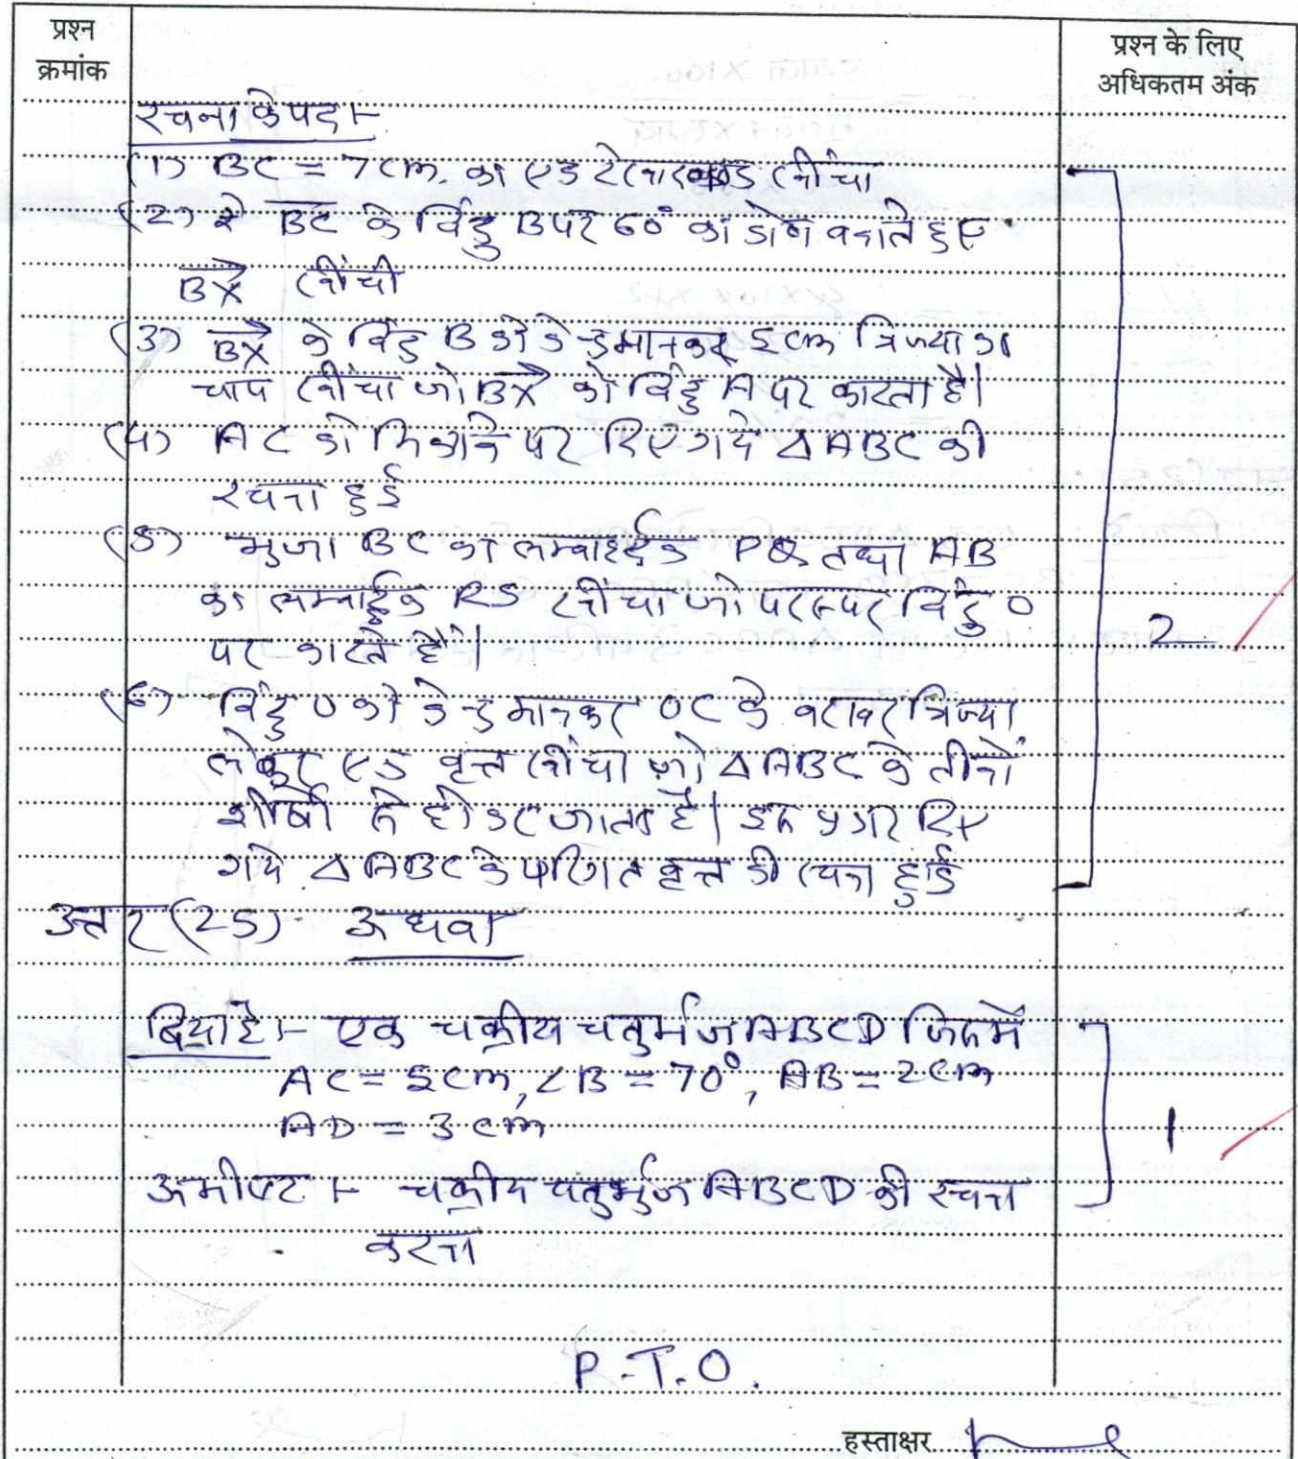 प्रश्न क्रमांक
प्रश्न के लिए अधिकतम अंक
रचना के पद :-
(1) BC = 7cm. का एक रेखाखण्ड खींचा
(2) रे BC के बिंदु B पर 60° का कोण बनाते हुए
BX खींची
(3) BX के बिंदु B को केन्द्र मानकर 5cm त्रिज्या का
चाप खींचा जो BX को बिंदु A पर काटता है।
(4) AC को मिलाने पर दिए गये Δ ABC की
रचना हुई
(5) भुजा BC का लम्बार्द्धक PQ तथा AB
का लम्बार्द्धक RS खींचा जो परस्पर बिंदु O
पर काटते है।
(6) बिंदु O को केन्द्र मानकर OC के बराबर त्रिज्या
लेकर एक वृत्त खींचा जो Δ ABC के तीनों
शीर्षो से होकर जाता है। इस प्रकार दिए
गये Δ ABC के परिगत वृत्त की रचना हुई
2
उत्तर (25) अथवा
दिया है :- एक चक्रीय चतुर्भुज ABCD जिसमें
AC = 5cm, ∠B = 70°, AB = 2cm
AD = 3cm
1
अभीष्ट :- चक्रीय चतुर्भुज ABCD की रचना
करना
P.T.O.
हस्ताक्षर